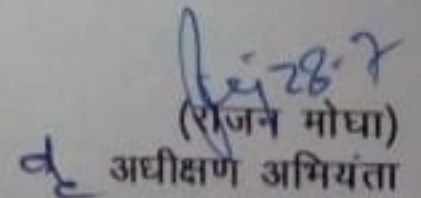 28.7
(राजन मोघा)
अधीक्षण अभियंता